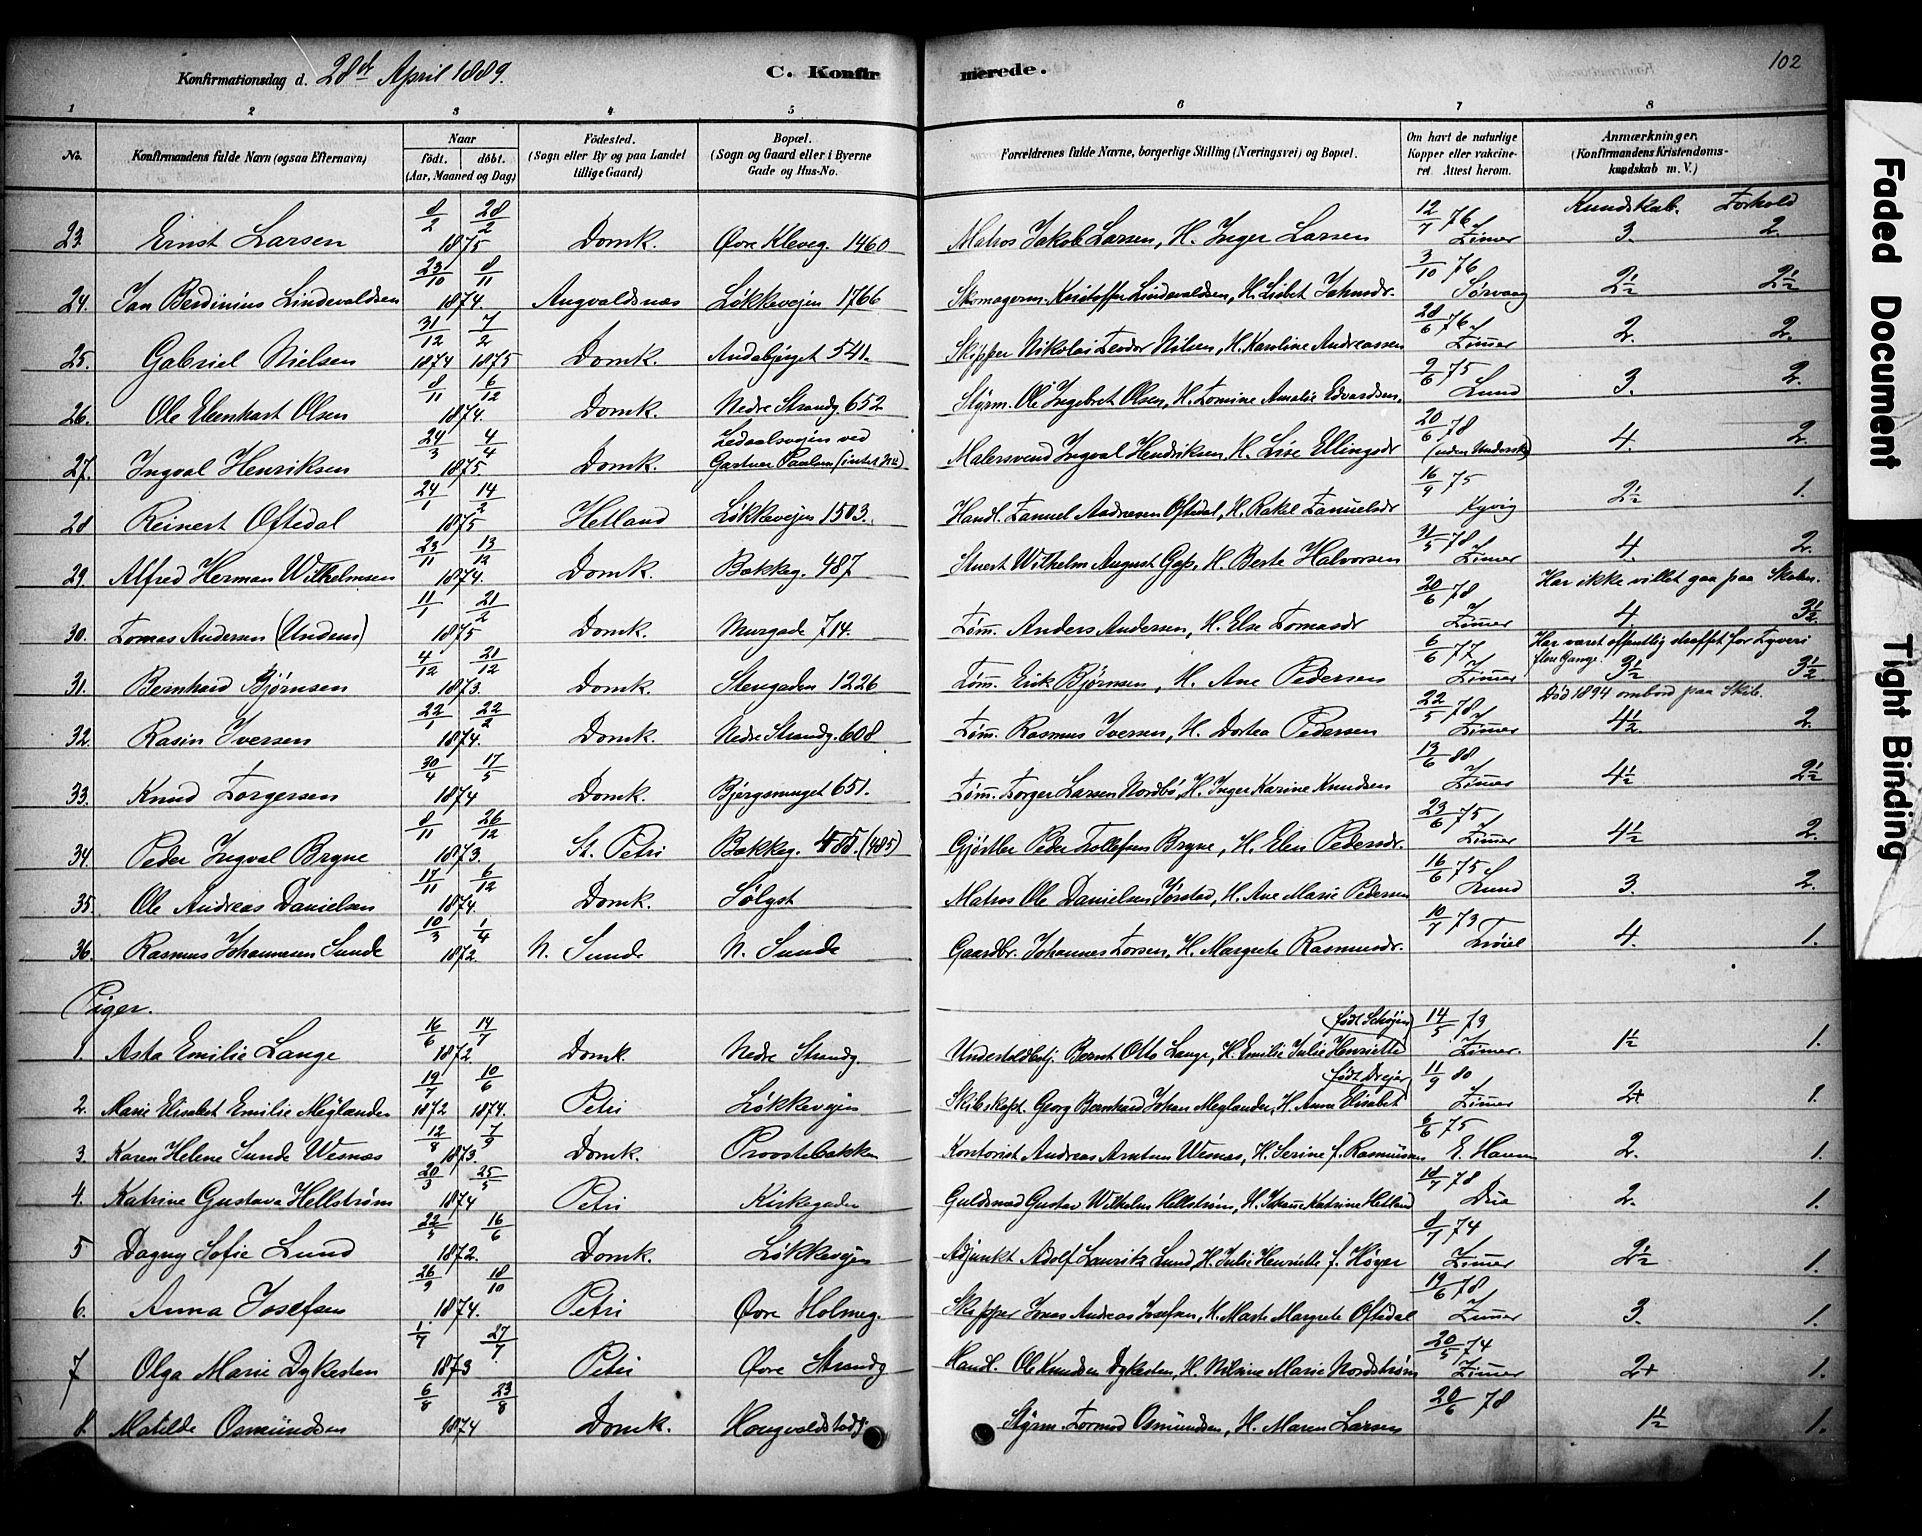 Konfirmationsdag d. 28de April 1889.
C. Konfirmerede.
102
1 2 3 4 5 6 7 8
No.
Konfirmandens fulde Navn (ogsaa Efternavn)
Naar
født. døbt.
(Aar, Maaned og Dag)
Fødested.
(Sogn eller By og paa Landet
tillige Gaard)
Bopæl.
(Sogn og Gaard eller i Byerne
Gade og Hus-No.
Forældrenes fulde Navne, borgerlige Stilling (Næringsvei) og Bopæl.
Om havt de naturlige
Kopper eller vakcine-
ret. Attest herom.
Anmærkninger.
(Konfirmandens Kristendoms-
kundskab m. V.)
Kundskab. Forhold
23. Ernst Larsen 8/2 28/2 1875 Domk. Øvre Kleveg. 1460 Matros Jakob Larsen, H. Inger Larsen 12/7 76 Zimer 3. 2.
24. Jan Berdinius Lindevaldsen 23/10 8/11 1874 Augvaldsnæs Løkkevejen 1766 Skomagerm. Kristoffer Lindevaldsen, H. Lisbet Johnsdr. 3/10 76 Sørvaag 2½ 2½
25. Gabriel Nielsen 31/12 1874 7/2 1875 Domk. Andabjerget 541. Skipper Nikolai Teodor Nilsen, H. Karoline Andreassen 28/6 76 Zimer 2. 2.
26. Ole Bernhart Olsen 8/11 6/12 1874. Domk. Nedre Strandg. 652 Styrm. Ole Ingebret Olsen, H. Tomine Amalie Edvardsen. 9/6 75 Lund 3. 2.
27. Ingval Henriksen 24/3 4/4 1875 Domk. Ledaalsvejen ved Gartner Paulsen (intet No.) Malersvend Ingval Hendriksen, H. Lise Ellingsdr 20/6 78 (uden Undersk.) 4. 2.
28 Reinert Oftedal 24/1 14/2 1875 Hetland Løkkevejen 1503. Handl. Samuel Andresen Oftedal, H. Rakel Samuelsdr 16/9 75 Kyvig 2½ 1.
29. Alfred Herman Wilhelmsen 23/11 13/12 1874. Domk. Bakkeg. 487 Stuert Wilhelm August Gaps, H. Berte Halvorsen 31/5 78 Zimer 4. 2.
Har ikke villet gaa paa Skolen.
30. Tomas Andersen (Undem) 11/1 21/2 1875 Domk. Murgade 714. Tøm. Anders Andersen, H. Else Tomasdr 20/6 78 Zimer 4 3½
Har været offentlig straffet for Tyveri
flere Gange.
31. Bernhard Bjørnsen 4/12 21/12 1873. Domk. Stengaden 1226 Tøm. Erik Bjørnsen, H. Ane Pedersen 6/6 77 Zimer 3½ 3½
Død 1894 ombord paa Skib.
32. Rasin Iversen 22/1 22/2 1874. Domk. Nedre Strandg. 608 Tøm. Rasmus Iversen, H. Dortea Pedersen 22/5 78 Zimer 4½ 2.
33. Knud Torgersen 30/4 17/5 1874 Domk. Bjergsmuget 651. Tøm. Torger Larsen Nordbø, H. Inger Karine Knudsen 13/6 80 Zimer 4½ 2½
34. Peder Ingval Bryne 8/11 26/12 1873. St. Petri Bakkeg. (485) Gjørtler Peder Tollefsen Bryne, H. Elen Pedersdr. 23/6 75 Zimer 4½ 2.
35. Ole Andreas Danielsen 17/11 6/12 1874. Domk. Sølyst Matros Ole Danielsen Jørstad, H. Ane Marie Pedersen 16/6 75 Lund 3. 2.
36. Rasmus Johannesen Sunde 10/3 1/4 1872. N. Sunde N. Sunde Gaardbr. Johannes Torsen, H. Margrete Rasmusdr. 10/7 73 Trøiel 4. 1.
Piger.
1. Asta Emilie Lange 16/6 14/7 1872 Domk. Nedre Strandg. Undertoldbetj. Bernt Otto Lange, H. Emilie Julie Henriette født Schøjen 14/5 79 Zimer. 1½ 1.
2. Marie Elisabet Emilie Meglander 19/7 1872 10/6 1874. Petri Løkkevejen Skibskapt. Georg Bernhard Johan Meglander, H. Anna Elisabet født Drejer 11/9 80 Zimer 2+ 1.
3. Karen Helene Sunde Wesnæs 12/8 7/9 1873. Domk. Provstebakken Kontorist Andreas Arntsen Wesnæs, H. Serine f. Rasmussen 6/6 75 E. Havn 2. 1.
4. Katrine Gustava Hellstrøm 20/3 25/5 1874 Petri Kirkegaden Guldsmed Gustav Wilhelm Hellstrøm, H. Johanne Katrine Hetland 18/7 78 Due 2. 1.
5 Dagny Sofie Lund 22/5 16/6 1872. Domk. Løkkevejen Adjunkt Adolf Lauritz Lund, H. Julie Henriette f. Høyer 8/7 74 Zimer 2½ 1.
6. Anna Josefsen 26/9 18/10 1874. Petri Øvre Holmeg. Skipper Jonas Andreas Josefsen, H. Marte Margrete Oftedal 19/6 78 Zimer 3. 1.
7 Olga Marie Dykesten 1/7 27/7 1873 Petri Øvre Strandg Handl. Ole Knudsen Dykesten, H. Nilsine Marie Nordstrøm 20/5 74 Zimer 2+ 1.
8. Matilde Osmundsen 6/8 23/8 1874 Domk. Hougvaldstadg. Styrm. Tormod Osmundsen, H. Maren Larsen 20/6 78 1½ 1.
Faded Document
Tight Binding